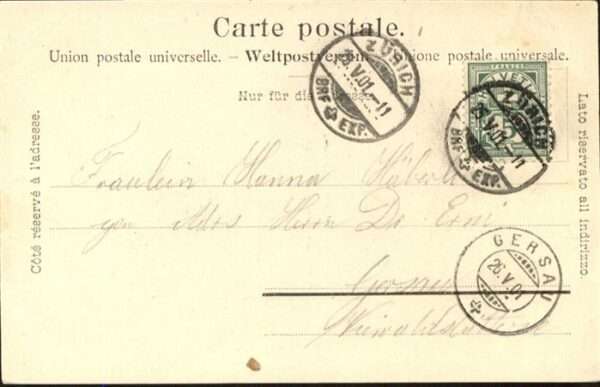 Carte postale.
Union postale universelle. – Weltpostverein. – Unione postale universale.
Nur für die Adresse.
Côté réservé à l'adresse.
Lato riservato all indirizzo.
ZÜRICH
26.V.01.-11
BRF. EXP.
HELVETIA
ZÜRICH
V.01.-11
BRF. EXP.
Fraulein Hanna Häberli
Herrn Dr. Erni
Gersau
Vierwaldstättersee
GERSAU
26.V.01